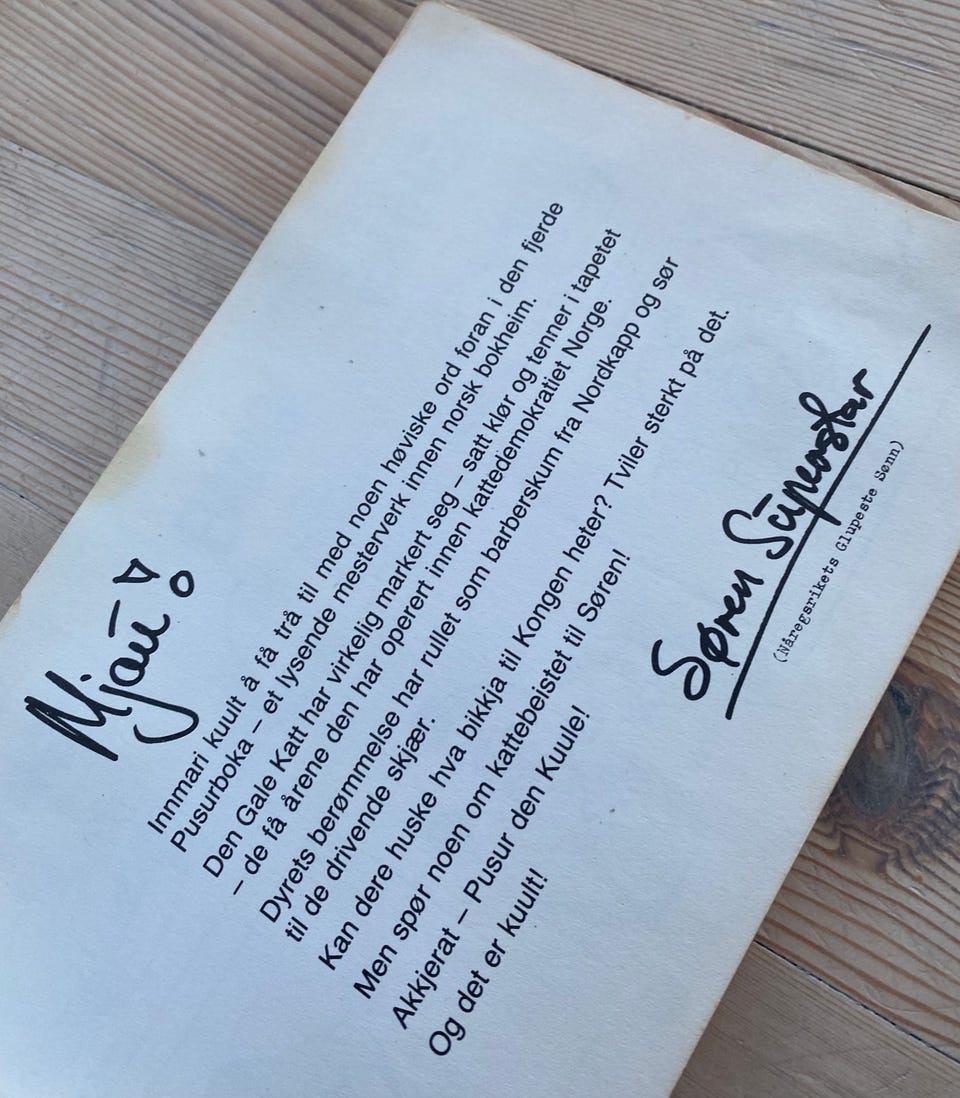 Mjau!
Innmari kuult å få trå til med noen høviske ord foran i den fjerde
Pusurboka – et lysende mesterverk innen norsk bokheim.
Den Gale Katt har virkelig markert seg – satt klør og tenner i tapetet
– de få årene den har operert innen kattedemokratiet Norge.
Dyrets berømmelse har rullet som barberskum fra Nordkapp og sør
til de drivende skjær.
Kan dere huske hva bikkja til Kongen heter? Tviler sterkt på det.
Men spør noen om kattebeistet til Søren!
Akkjerat – Pusur den Kuule!
Og det er kuult!
Søren Superstar
(Nåregsrikets Glupeste Sønn)